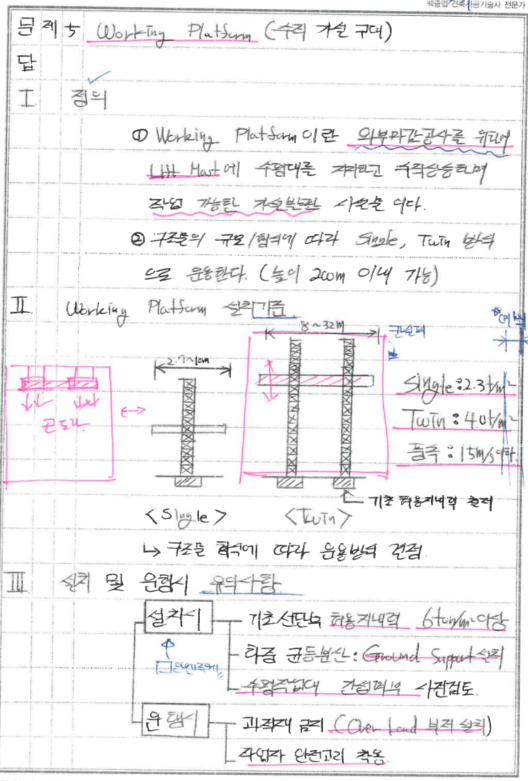 백종엽 건축시공기술사 전문가
문제 5 Working Platform (수직 가설 구대)
답
I 정의
① Working Platform 이란 외부마감공사를 위하여
Lift Mast에 수평대를 하고 수직상승하며
작업 가능한 가설 시설물 이다.
② 구조물의 규모/형식에 따라 Single, Twin 방식
으로 운용한다. (높이 200m 이내 가능)
II Working Platform 설치기준
8~32m
2.7~
Single : 2.3t/m²
Twin : 4.0t/m²
풍속 : 15m/s이하
곤도라
기초 허용지내력 확인
<Single> <Twin>
↳ 구조물 형식에 따라 운용방식 결정
III 설치 및 운행시 유의사항
설치시
기초지반의 허용지내력 6ton/m²이상
하중 균등분산 : Ground Support 설치
수평작업대 간섭여부 사전검토.
운행시
과적재 금지 (Over Load 부저 설치)
작업자 안전고리 착용